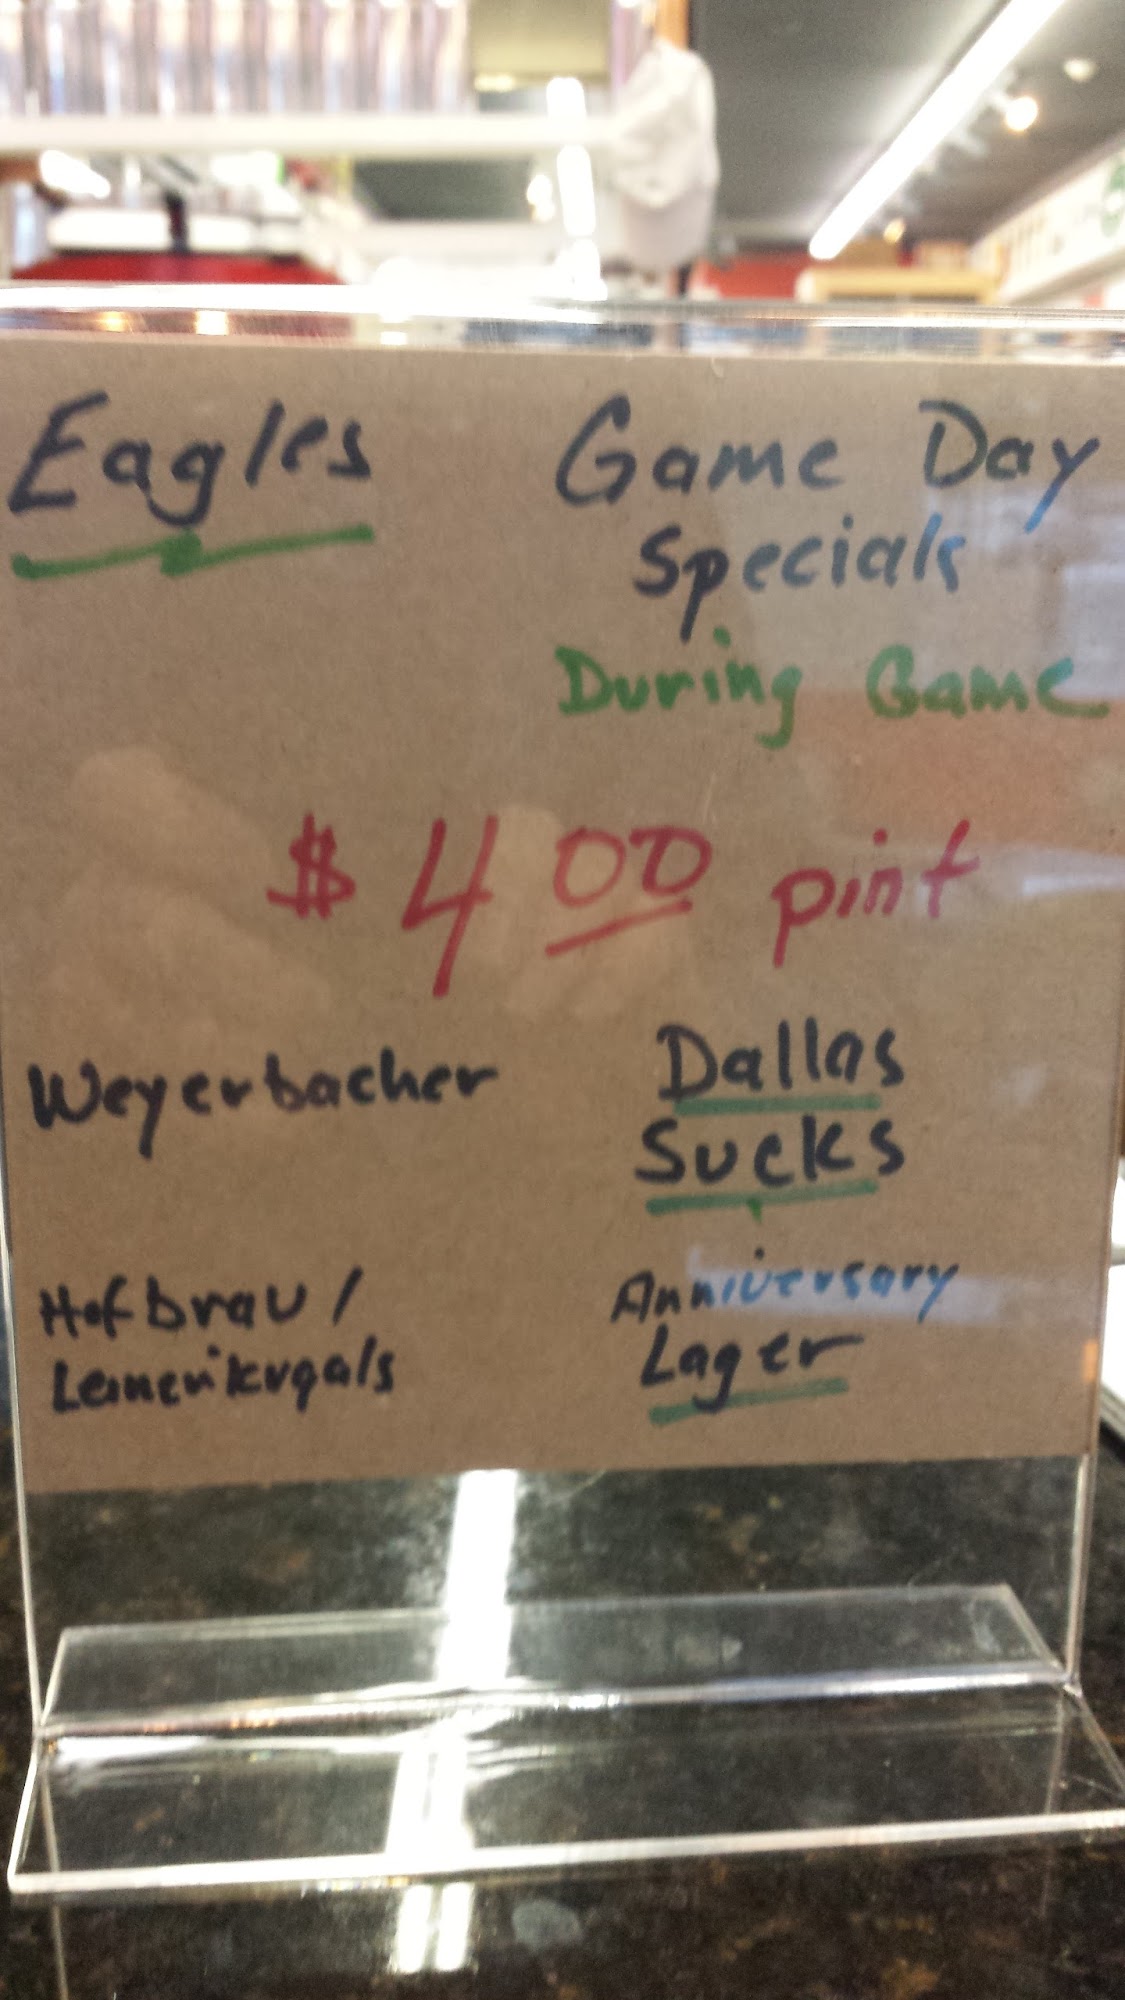 Eagles Game Day
Specials
During Game
$ 4 00 pint
Weyerbacher Dallas
Sucks
Hofbrau / Anniversary
Lager